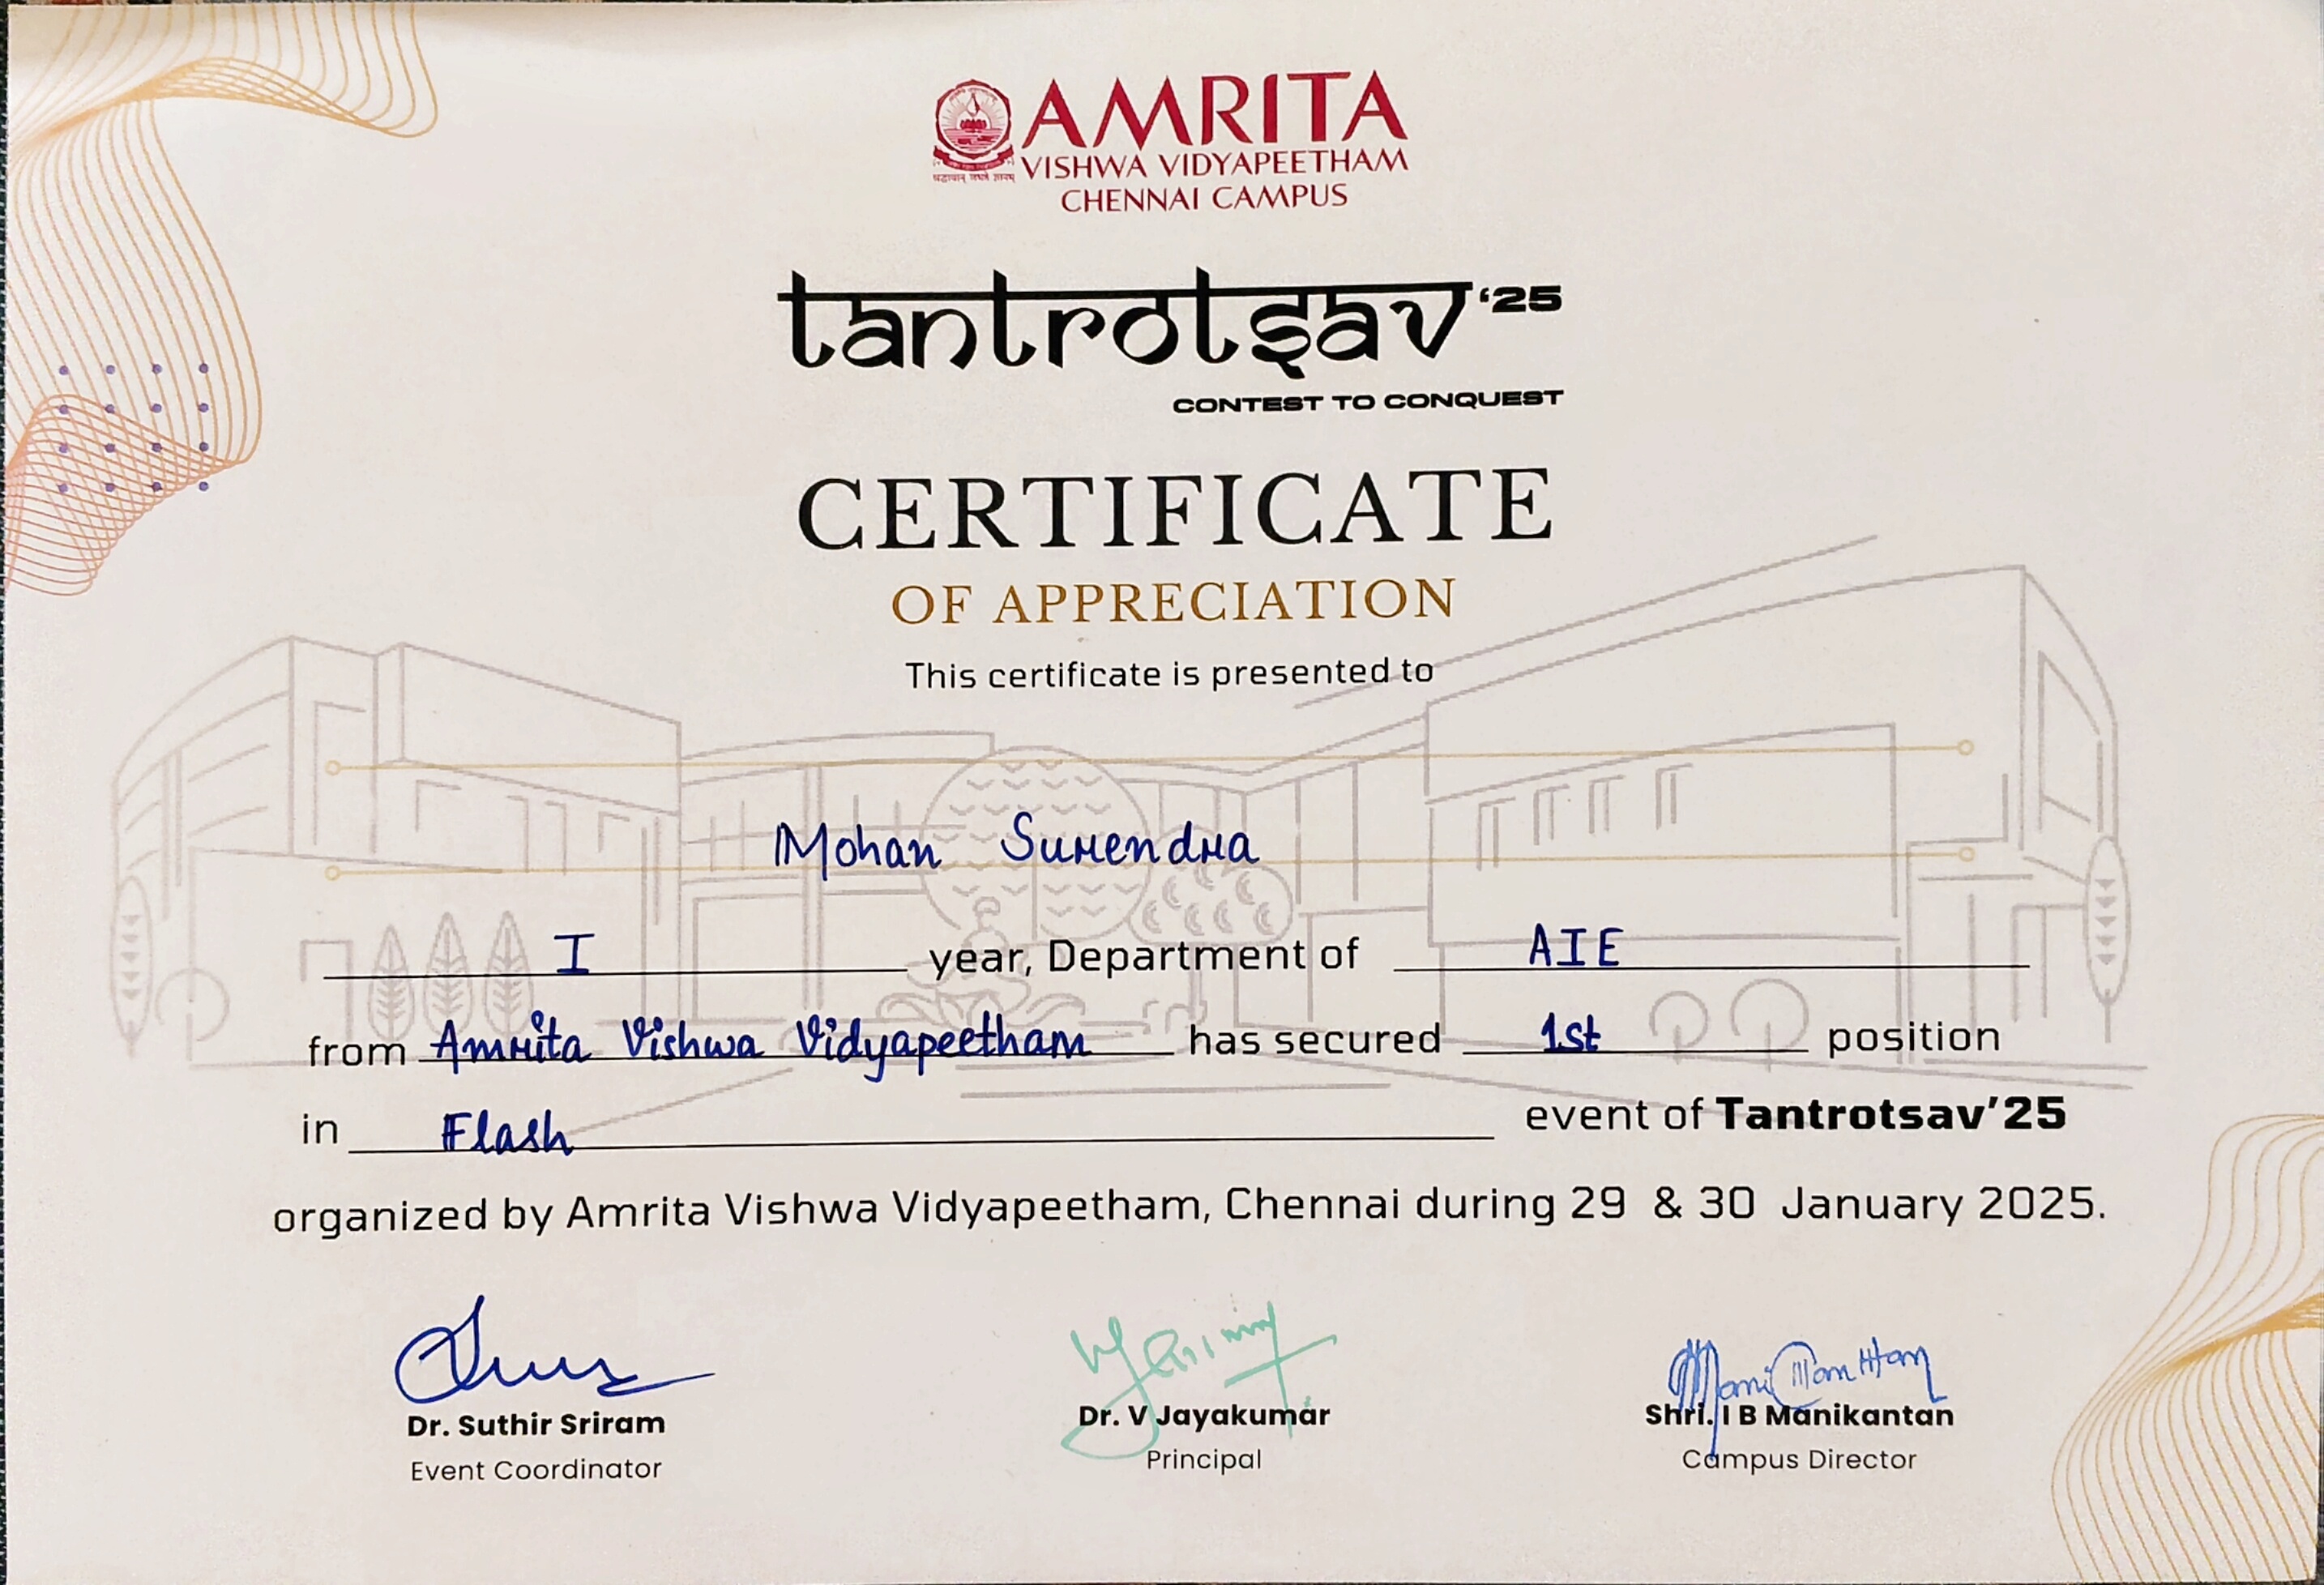 AMRITA
VISHWA VIDYAPEETHAM
CHENNAI CAMPUS
tantrotsav '25
CONTEST TO CONQUEST
CERTIFICATE
OF APPRECIATION
This certificate is presented to
Mohan Surendra
I year, Department of AIE
from Amrita Vishwa Vidyapeetham has secured 1st position
in Flash event of Tantrotsav'25
organized by Amrita Vishwa Vidyapeetham, Chennai during 29 & 30 January 2025.
Dr. Suthir Sriram Dr. V Jayakumar Shri. I B Manikantan
Event Coordinator Principal Campus Director